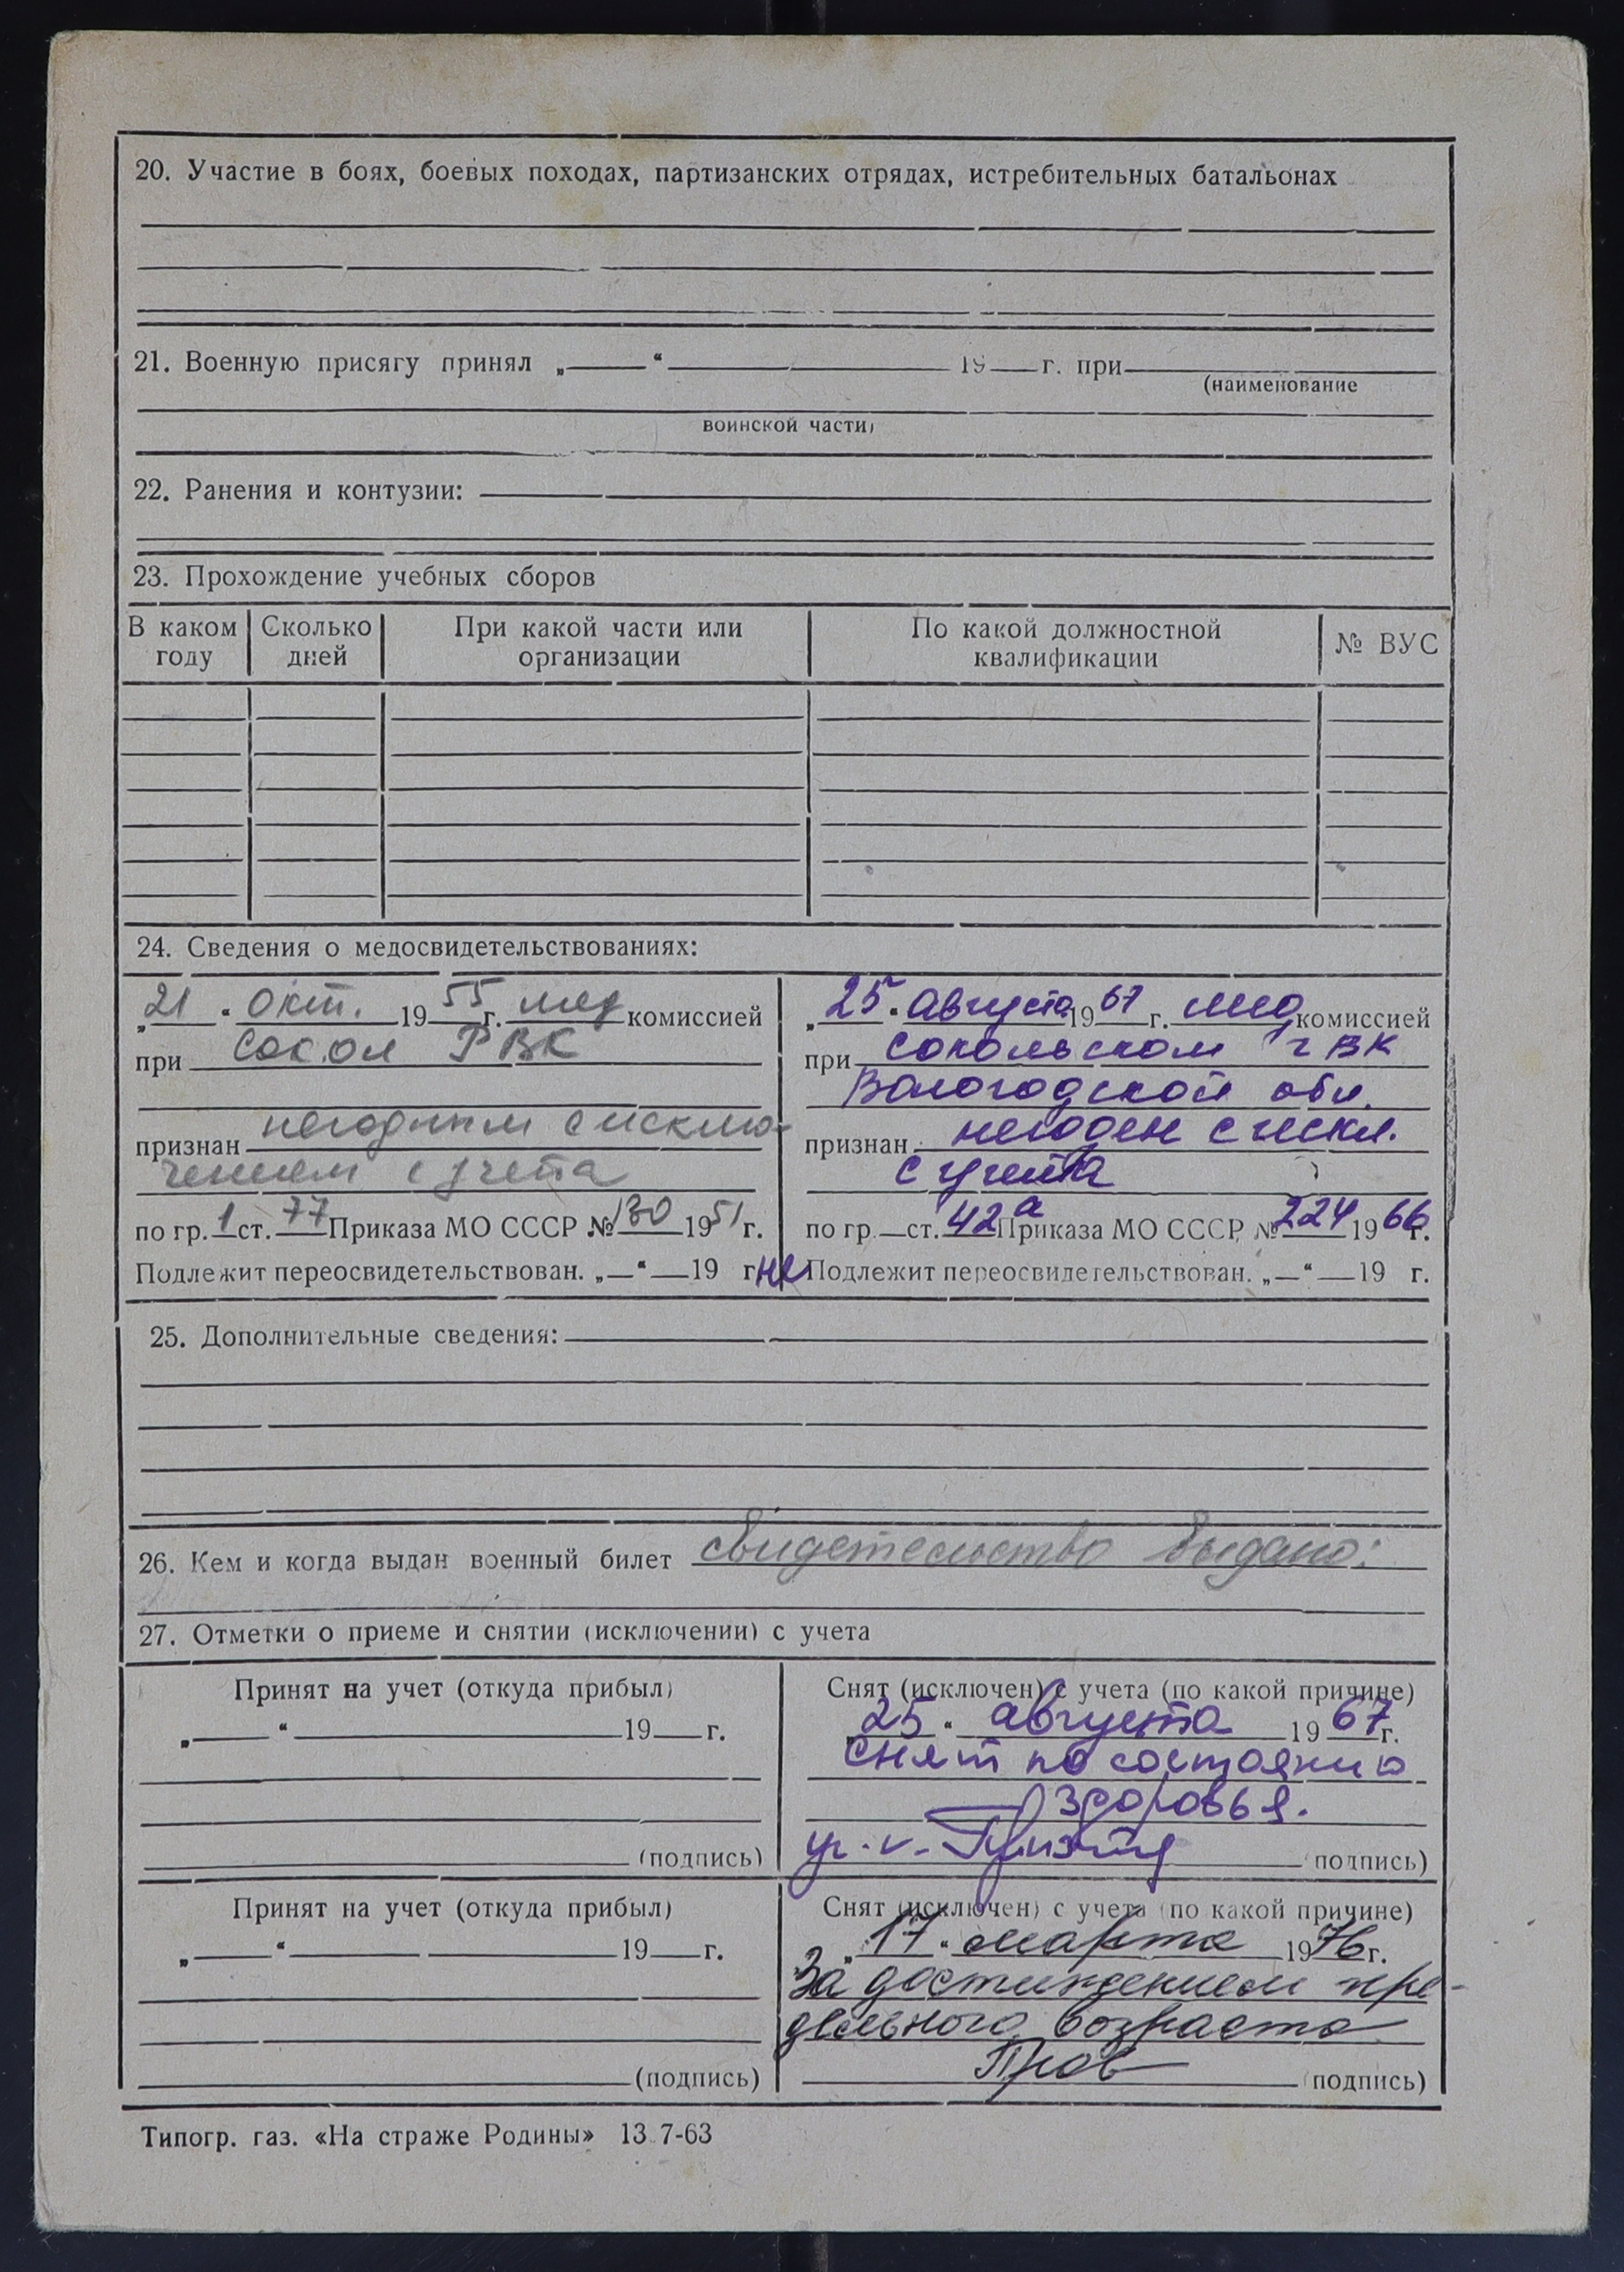 20. Участие в боях, боевых походах, партизанских отрядах, истребительных батальонах
21. Военную присягу принял „ “ 19 г. при
(наименование
воинской части)
22. Ранения и контузии:
23. Прохождение учебных сборов
В каком году
Сколько дней
При какой части или организации
По какой должностной квалификации
№ ВУС
24. Сведения о медосвидетельствованиях:
„21“ окт. 1955 г. мед комиссией
при Сокол РВК
признан негодным с исклю-
чением с учета
по гр. 1 ст. 77 Приказа МО СССР № 130 1951 г.
Подлежит переосвидетельствован. „ “ 19 г.
„25“ августа 1967 г. мед комиссией
при Сокольском ГВК
Вологодской обл.
признан негоден с искл.
с учета
по гр. ст. 42а Приказа МО СССР № 224 1966 г.
не Подлежит переосвидетельствован. „ “ 19 г.
25. Дополнительные сведения:
26. Кем и когда выдан военный билет свидетельство выдано:
27. Отметки о приеме и снятии (исключении) с учета
Принят на учет (откуда прибыл)
„ “ 19 г.
(подпись)
Снят (исключен) с учета (по какой причине)
25 “ августа 1967 г.
Снят по состоянию
здоровья.
(подпись)
Принят на учет (откуда прибыл)
„ “ 19 г.
(подпись)
Снят (исключен) с учета (по какой причине)
„17“ марта 1976 г.
За достижением пре-
дельного возраста
(подпись)
Типогр. газ. «На страже Родины» 13.7-63